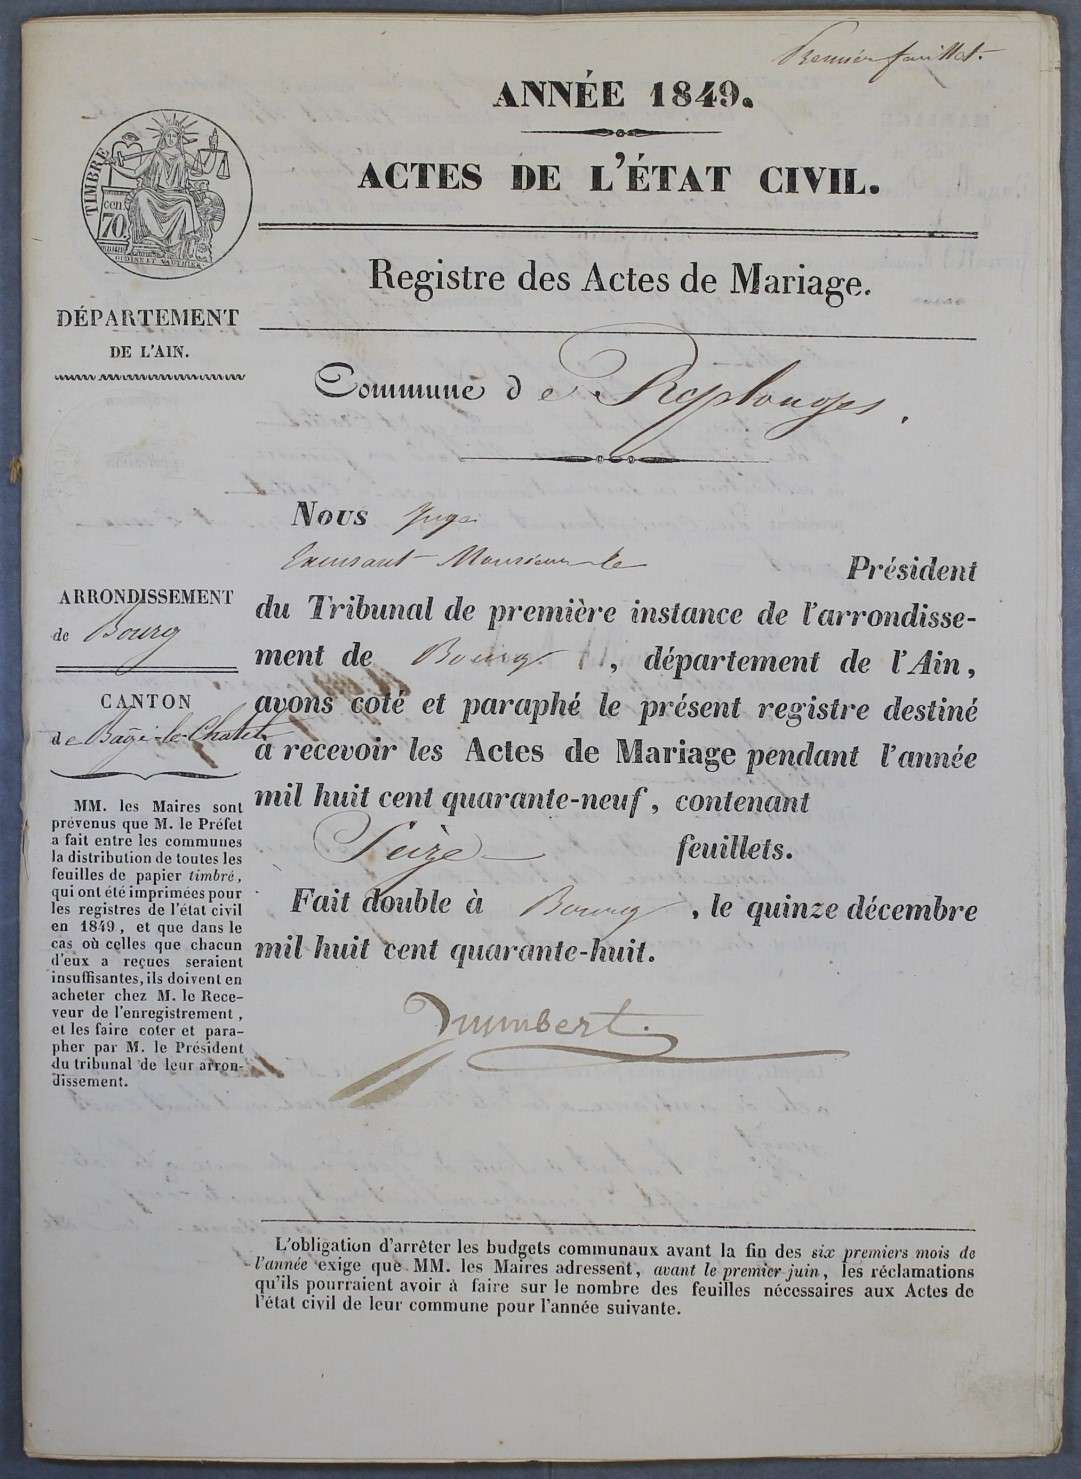 Premier feuillet.
ANNÉE 1849.
ACTES DE L'ÉTAT CIVIL.
Registre des Actes de Mariage.
TIMBRE
cen.
70
DÉPARTEMENT
DE L'AIN.
Commune de Replonges.
Nous Juge
Excusant Monsieur le Président
du Tribunal de première instance de l'arrondisse-
ment de Bourg, département de l'Ain,
avons coté et paraphé le présent registre destiné
a recevoir les Actes de Mariage pendant l'année
mil huit cent quarante-neuf, contenant
Seize feuillets.
Fait double à Bourg, le quinze décembre
mil huit cent quarante-huit.
ARRONDISSEMENT
de Bourg
CANTON
de Bagé-le-Chatel
MM. les Maires sont
prévenus que M. le Préfet
a fait entre les communes
la distribution de toutes les
feuilles de papier timbré,
qui ont été imprimées pour
les registres de l'état civil
en 1849, et que dans le
cas où celles que chacun
d'eux a reçues seraient
insuffisantes, ils doivent en
acheter chez M. le Rece-
veur de l'enregistrement,
et les faire coter et para-
pher par M. le Président
du tribunal de leur arron-
dissement.
L'obligation d'arrêter les budgets communaux avant la fin des six premiers mois de
l'année exige que MM. les Maires adressent, avant le premier juin, les réclamations
qu'ils pourraient avoir à faire sur le nombre des feuilles nécessaires aux Actes de
l'état civil de leur commune pour l'année suivante.